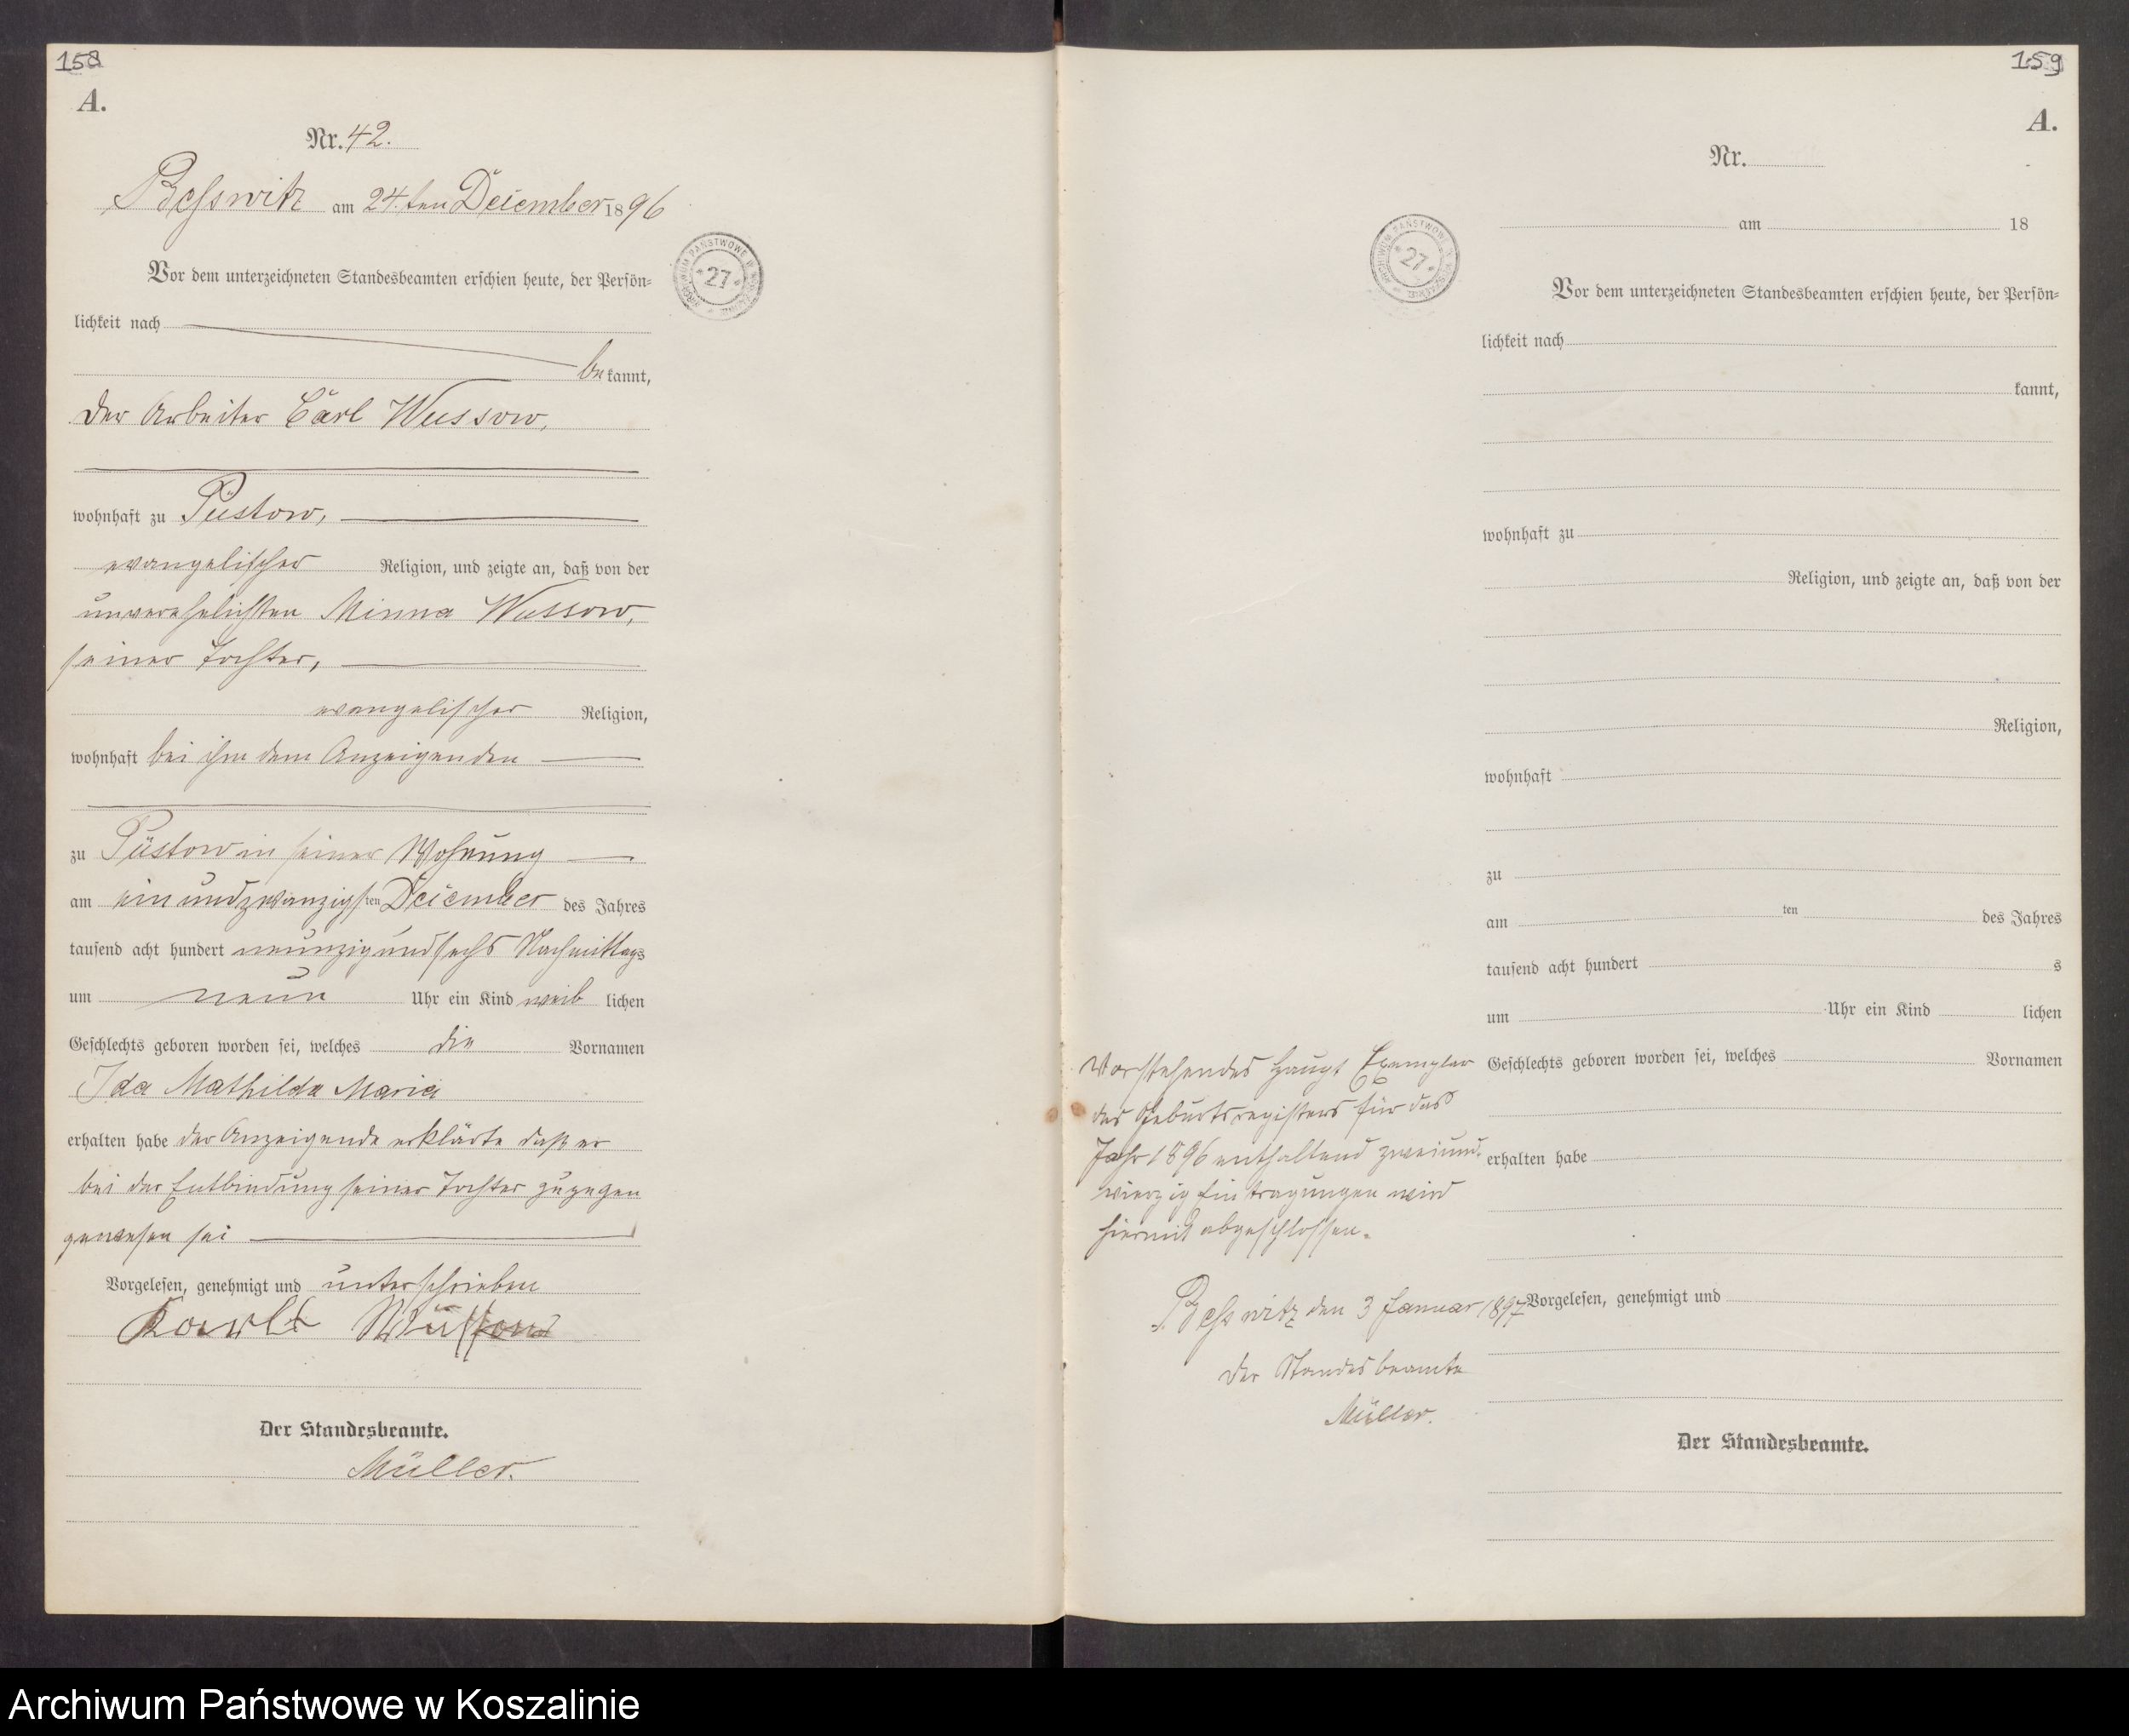 158
A.
Nr. 42.
Besswitz am 24.ten December 1896
Vor dem unterzeichneten Standesbeamten erschien heute, der Persön-
lichkeit nach
bekannt,
der Arbeiter Carl Wussow,
wohnhaft zu Püstow,
evangelischer Religion, und zeigte an, daß von der
unverehelichten Minna Wussow,
seiner Tochter,
evangelischer Religion,
wohnhaft bei ihm dem Anzeigenden
zu Püstow in seiner Wohnung
am einundzwanzigsten December des Jahres
tausend acht hundert neunzig und sechs Nachmittags
um neun Uhr ein Kind weiblichen
Geschlechts geboren worden sei, welches die Vornamen
Ida Mathilde Maria
erhalten habe der Anzeigende erklärte daß er
bei der Entbindung seiner Tochter zugegen
gewesen sei
Vorgelesen, genehmigt und unterschrieben
Der Standesbeamte.
Müller.
ARCHIWUM PAŃSTWOWE W KOSZALINIE
* 27 *
159
A.
Nr.
am 18
ARCHIWUM PAŃSTWOWE W KOSZALINIE
* 27 *
Vor dem unterzeichneten Standesbeamten erschien heute, der Persön-
lichkeit nach
kannt,
wohnhaft zu
Religion, und zeigte an, daß von der
Religion,
wohnhaft
zu
am ten des Jahres
tausend acht hundert s
um Uhr ein Kind lichen
Geschlechts geboren worden sei, welches Vornamen
erhalten habe
Vorgelesen, genehmigt und
Der Standesbeamte.
Vorstehendes Haupt Exemplar
des Geburtsregisters für das
Jahr 1896 enthaltend zweiund-
vierzig Eintragungen wird
hiermit abgeschlossen.
Besswitz den 3 Januar 1897
Der Standesbeamte
Müller.
Archiwum Państwowe w Koszalinie